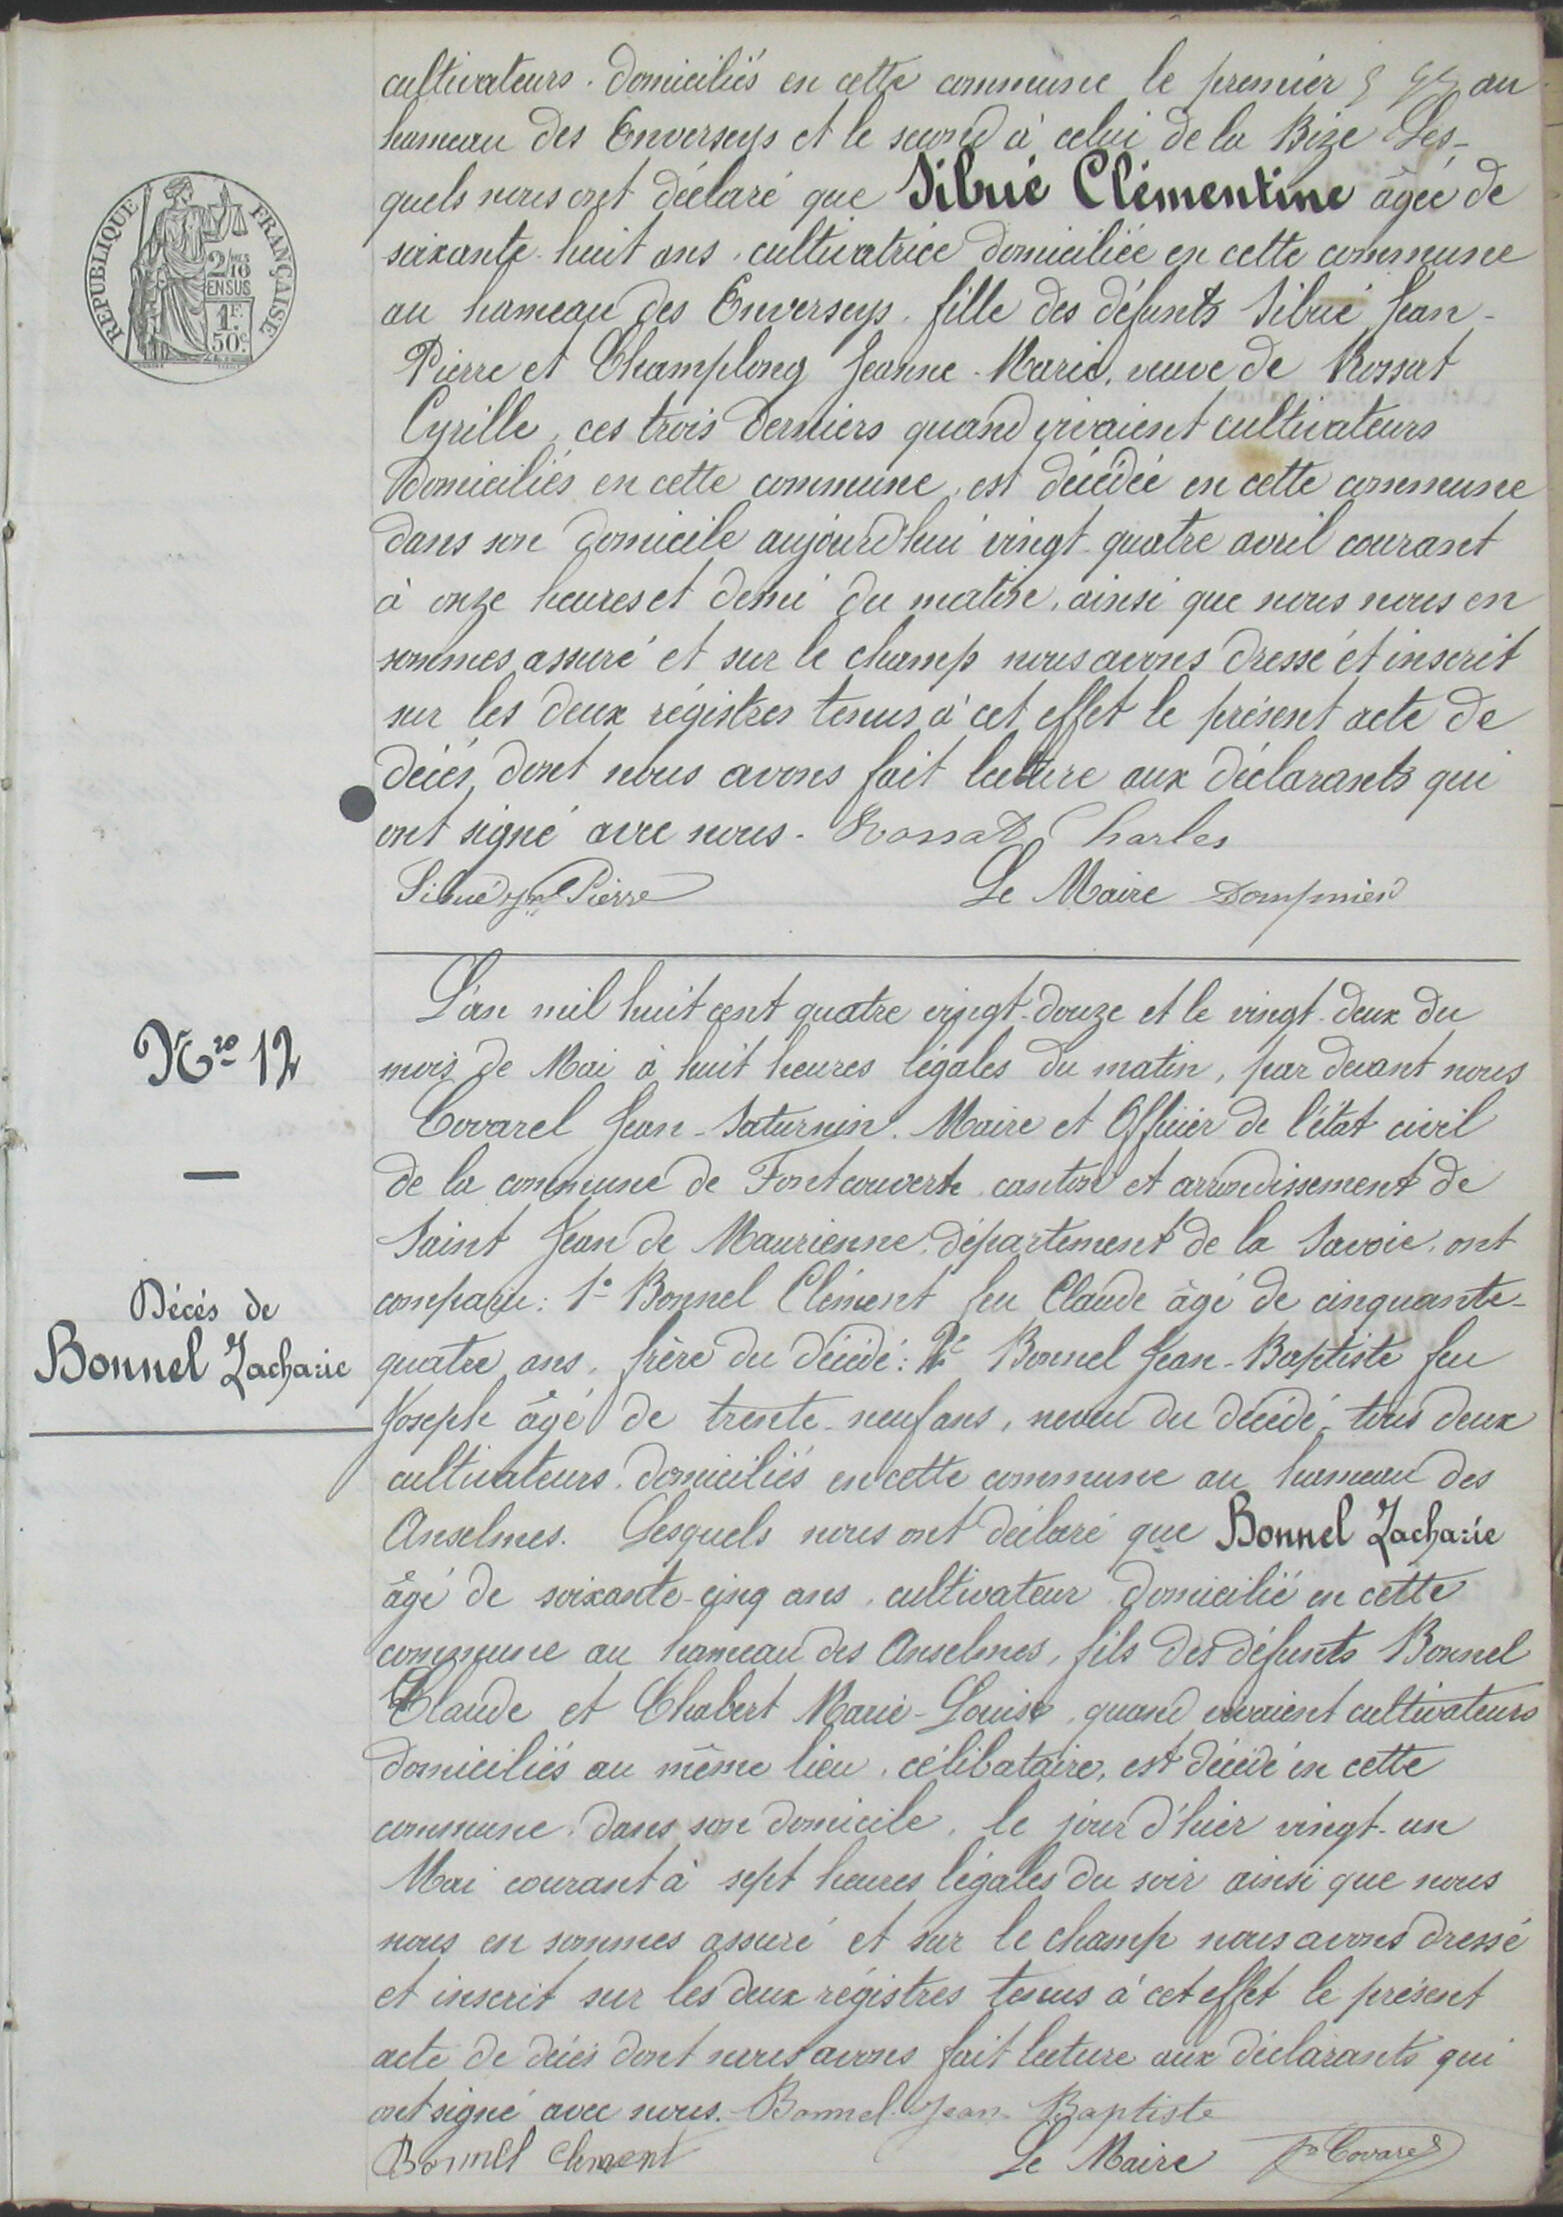 cultivateurs. domiciliés en cette commune le premier au
hameau des Enverseys et le second à celui de la Bize Les-
quels nous ont déclaré que Sibué Clémentine âgée de
soixante-huit ans, cultivatrice domiciliée en cette commune
au hameau des Enverseys, fille des défunts Sibué Jean-
Pierre et Champlong Jeanne-Marie, veuve de Rossat
Cyrille, ces trois derniers quand vivaient cultivateurs
domiciliés en cette commune, est décédée en cette commune
dans son domicile aujourd'hui vingt-quatre avril courant
à onze heures et demi du matin, ainsi que nous nous en
sommes assuré et sur le champ nous avons dressé et inscrit
sur les deux régistres tenus à cet effet le présent acte de
décès, dont nous avons fait lecture aux déclarants qui
ont signé avec nous. Rossat Charles
Sibué Pierre Le Maire Dompnier
RÉPUBLIQUE FRANÇAISE
2/10 MES
EN SUS
1F.
50c.
Nro 12
Décés de
Bonnel Zacharie
L'an mil huit cent quatre vingt-douze et le vingt-deux du
mois de Mai à huit heures légales du matin, par devant nous
Covarel Jean-Saturnin. Maire et Officier de l'état civil
de la commune de Fontcouverte canton et arrondissement de
Saint Jean de Maurienne, département de la Savoie, ont
comparu: 1° Bonnel Clément feu Claude âgé de cinquante-
quatre ans, frère du décédé: 2° Bonnel Jean-Baptiste feu
Joseph âgé de trente-neuf ans, neveu du décédé, tous deux
cultivateurs, domiciliés en cette commune au hameau des
Anselmes. Lesquels nous ont déclaré que Bonnel Zacharie
âgé de soixante-cinq ans, cultivateur domicilié en cette
commune au hameau des Anselmes, fils des défunts Bonnel
Claude et Chabert Marie-Louise, quand vivaient cultivateurs
domiciliés au même lieu, célibataire, est décédé en cette
commune, dans son domicile, le jour d'hier vingt-un
Mai courant à sept heures légales du soir ainsi que nous
nous en sommes assuré et sur le champ nous avons dressé
et inscrit sur les deux régistres tenus à cet effet le présent
acte de décès dont nous avons fait lecture aux déclarants qui
ont signé avec nous. Bonnel Jean Baptiste
Bonnel Clement Le Maire Covarel